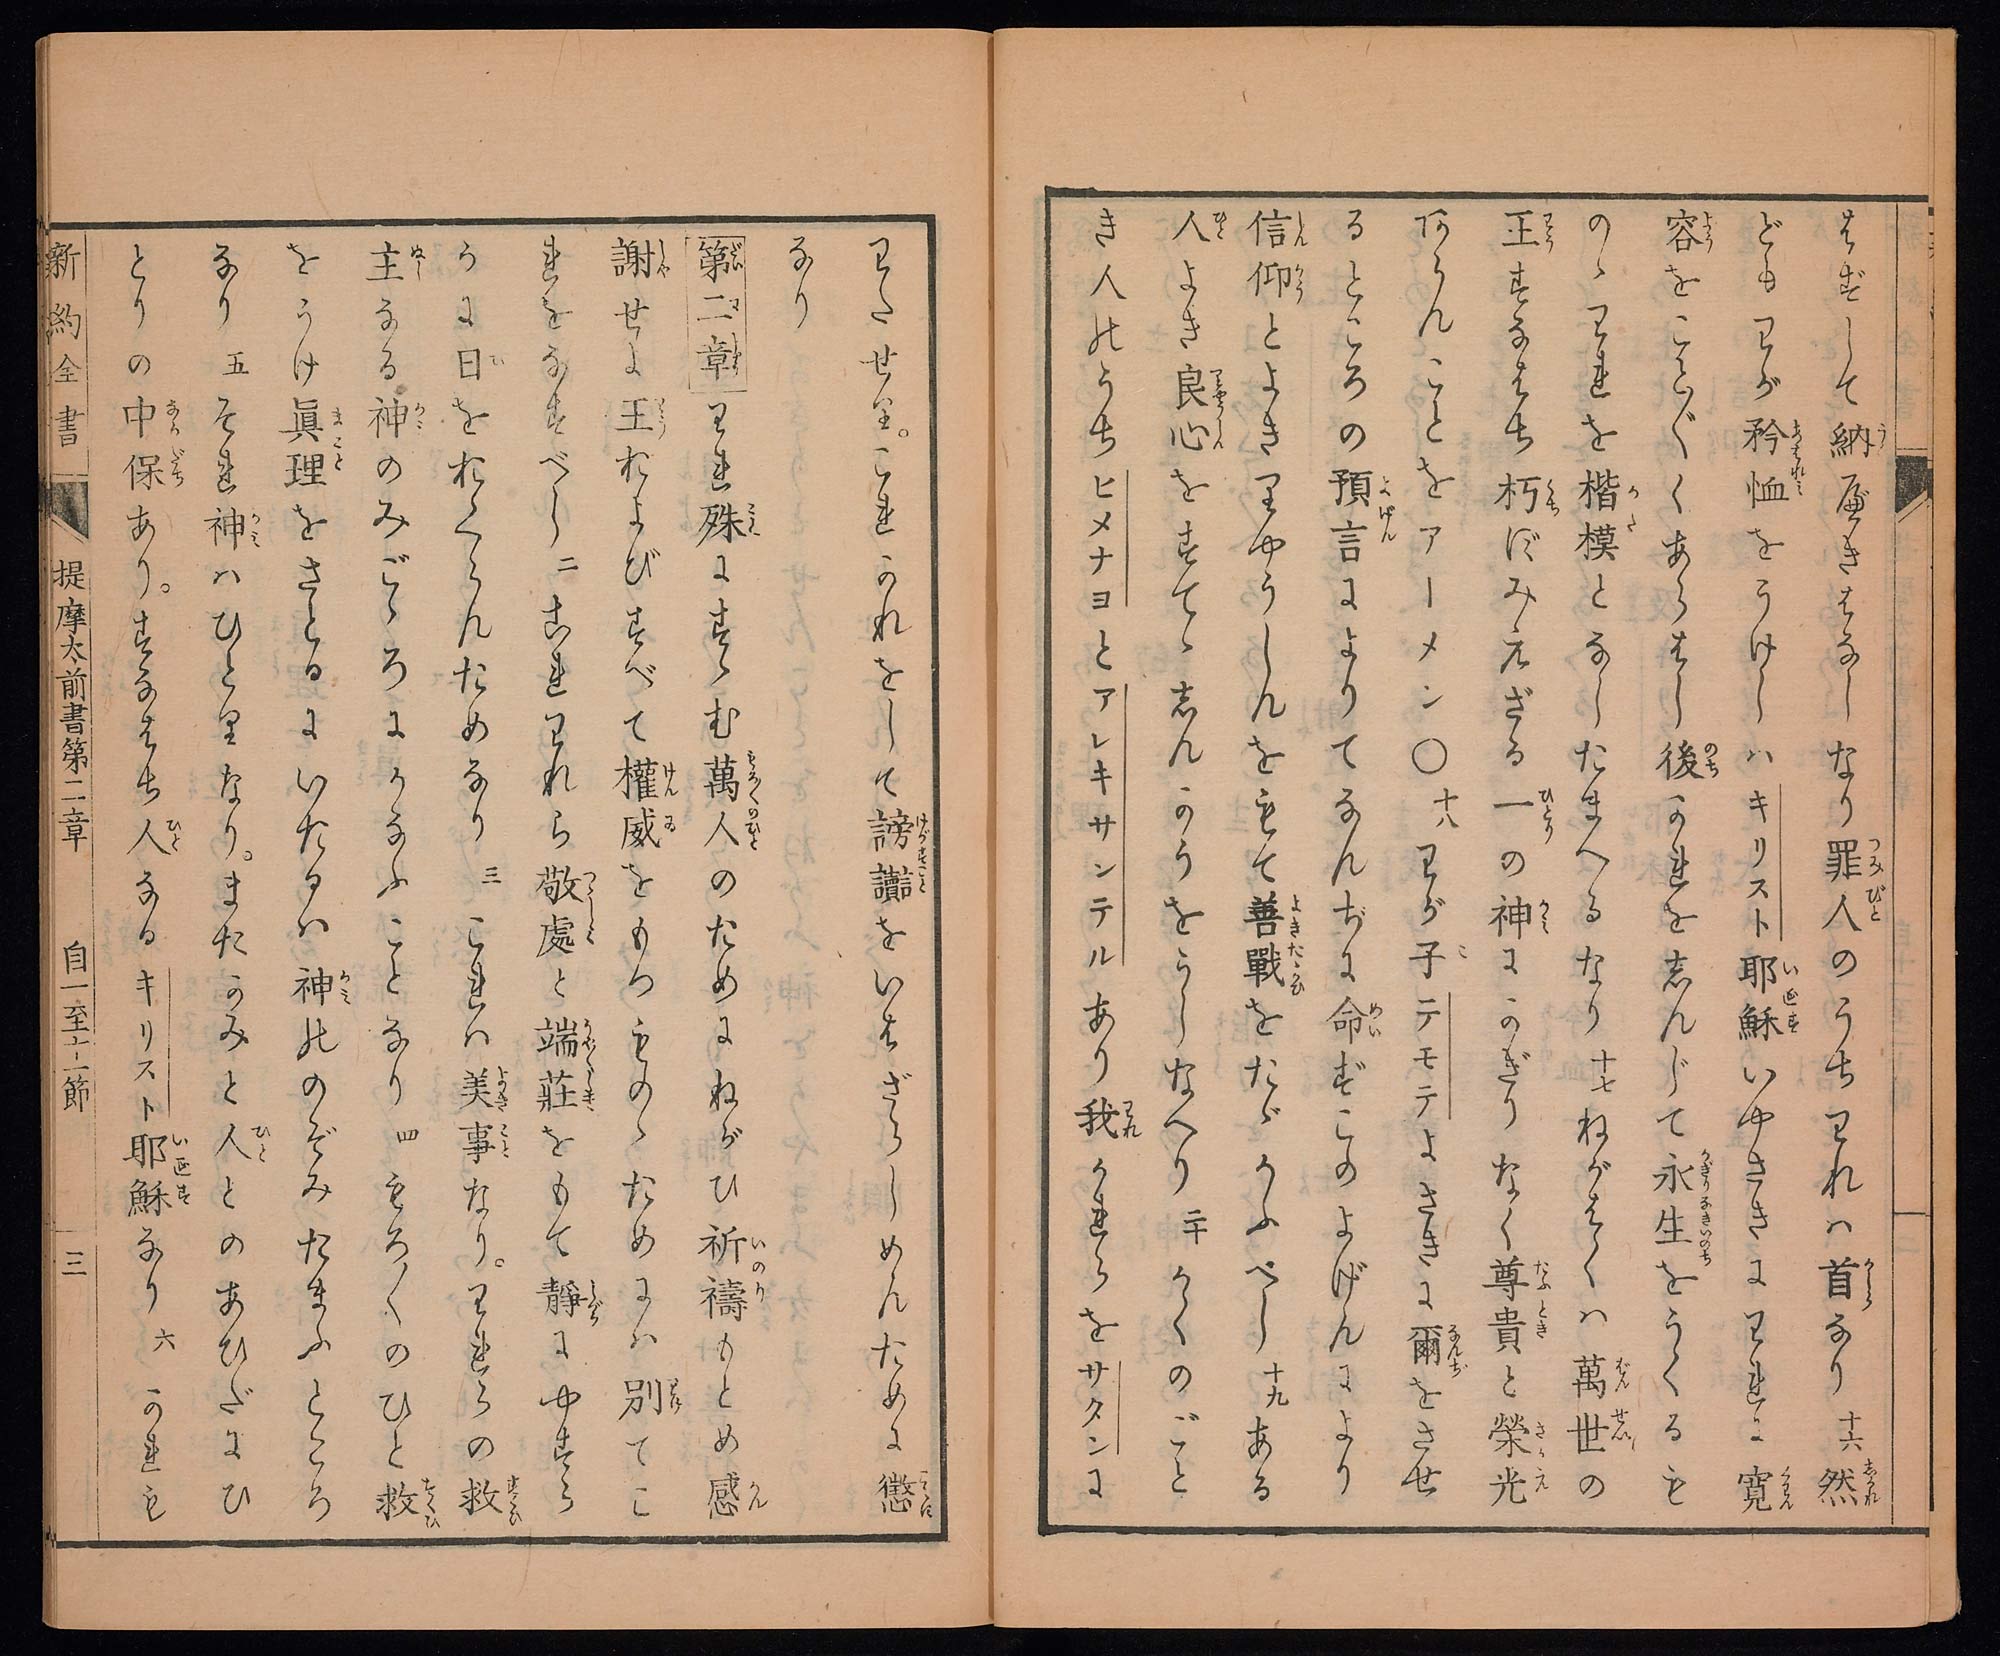 はずして納べきはなしなり罪人のうちわれハ首なり 十六 然
どもわが矜恤をうけしハキリスト耶穌いやさきにわれに寛
容をこと〴〵くあらはし後かれをしんじて永生をうくるも
のゝわれを楷模となしたまへるなり 十七 ねがはくハ萬世の
王すなはち朽ずみえざる一の神にかぎりなく尊貴と榮光
あらんことをアーメン〇 十八 わが子テモテよさきに爾をさせ
るところの預言によりてなんぢに命ずこのよげんにより
信仰とよきりやうしんをもて善戰をたゝかふべし 十九 ある
人よき良心をすてゝしんかうをうしなへり 二十 かくのごと
き人のうちヒメナヨとアレキサンテルあり我かれらをサタンに
わたせり。これかれをして謗讟をいはざらしめんために懲
なり
第二章 われ殊にすゝむ萬人のためにねがひ祈禱もとめ感
謝せよ王およびすべて權威をもつものゝためにハ別てこ
れをなすべし 二 これわれら敬處と端莊をもて靜にやすら
かに日をおくらんためなり 三 これハ美事なり。われらの救
主なる神のみこゝろにかなふことなり 四 もろ〳〵のひと救
をうけ眞理をさとるにいたるハ神ののぞみたまふところ
なり 五 それ神ハひとりなり。またかみと人とのあひだにひ
とりの中保あり。すなはち人なるキリスト耶穌なり 六 かれも
新約全書 提摩太前書第二章 自一至十二節 三